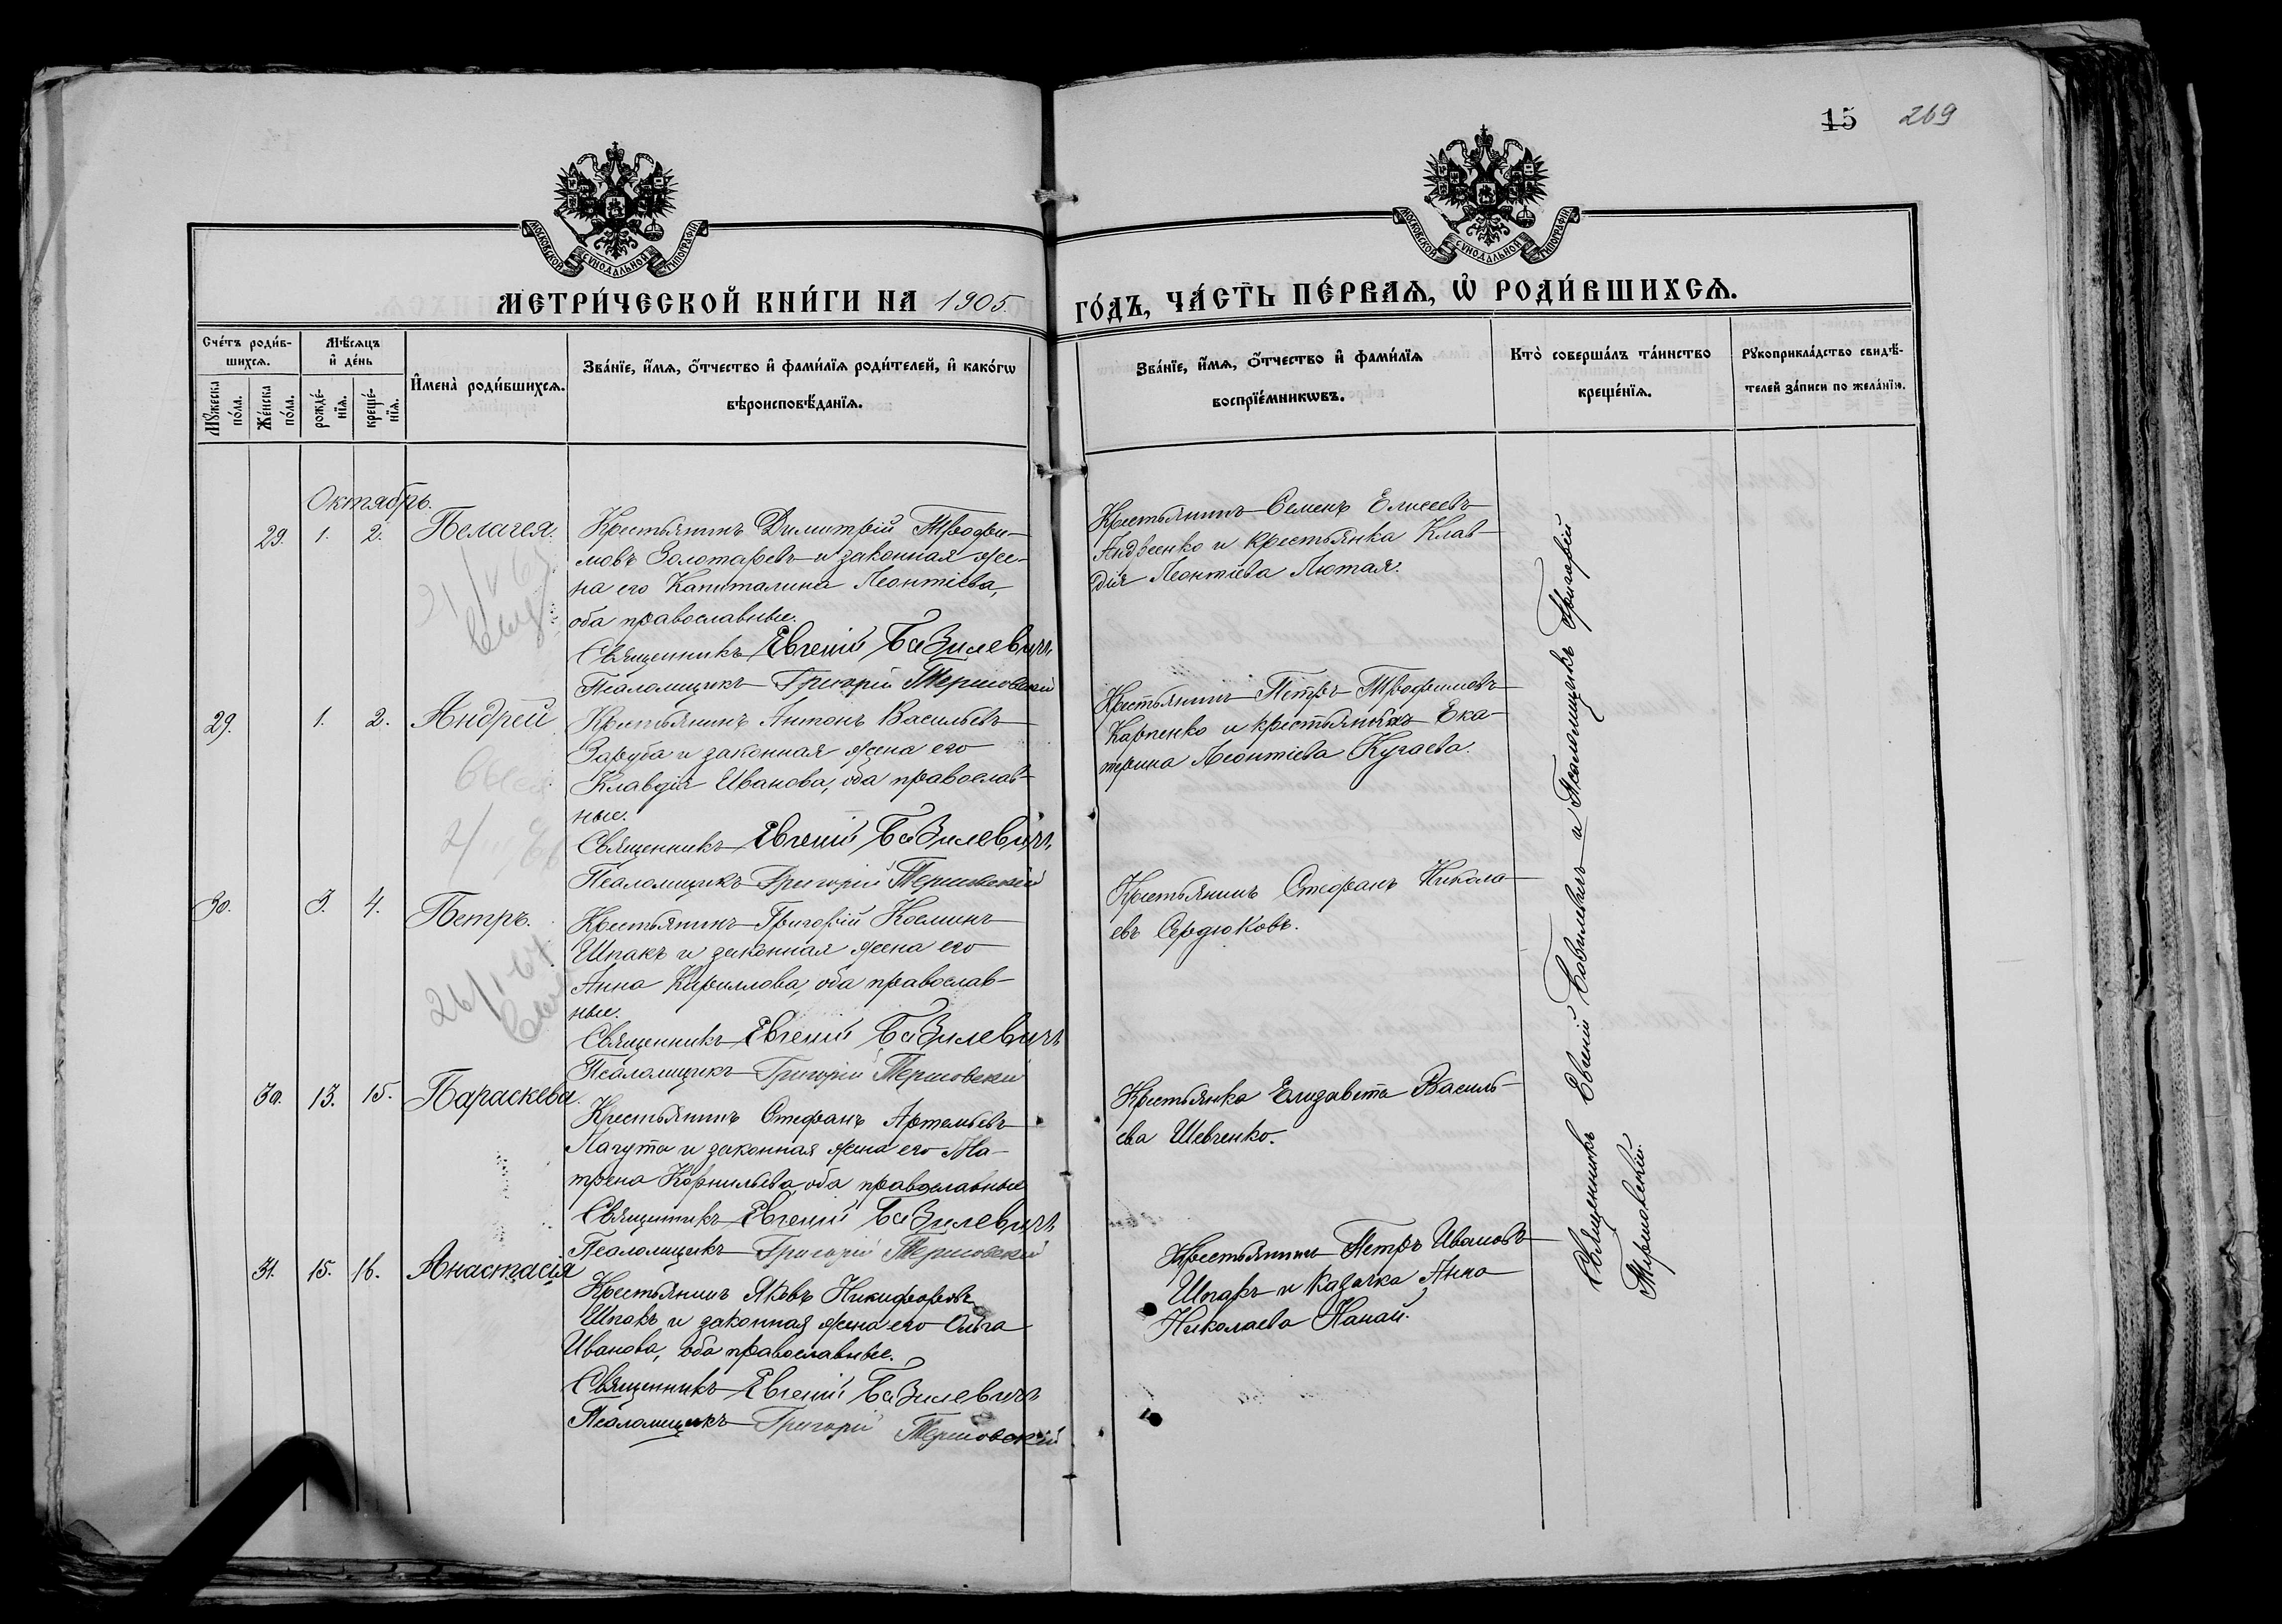 15 269
МОСКОВСКОЙ СѴНОДАЛЬНОЙ ТИПОГРАФІИ
МОСКОВСКОЙ СѴНОДАЛЬНОЙ ТИПОГРАФІИ
МЕТРИ́ЧЕСКОЙ КНИ́ГИ НА 1905
ГО́ДЪ, ЧА́СТЬ ПЕ́РВАѦ, Ѡ҆ РОДИ́ВШИХСѦ.
Сче́тъ роди́в-
шихсѧ.
Мꙋжеска
по́ла.
Же́нска
по́ла.
Мѣ́сѧцъ
и҆ де́нь
рожде́-
нїѧ.
креще́-
нїѧ.
И҆мена̀ роди́вшихсѧ.
Зва́нїе, и҆́мѧ, ѻ҆́тчество и҆ фами́лїѧ роди́телей, и҆ како́гѡ
вѣроисповѣ́данїѧ.
Зва́нїе, и҆́мѧ, ѻ҆́тчество и҆ фами́лїѧ
воспрїе́мникѡвъ.
Кто̀ соверша́лъ та́инство
креще́нїѧ.
Рꙋкоприкла́дство свидѣ́-
телей за́писи по жела́нїю.
Октябрь.
29. 1. 2. Пелагея.
Крестьянинъ Димитрій Трофи-
мовъ Золотаревъ и законная же-
на его Капиталина Леонтіева,
оба православные.
Священникъ Евгеній Базилевичъ
Псаломщикъ Григорій Терновскій
Крестьянинъ Семенъ Елисеевъ
Андреенко и крестьянка Клав-
дія Леонтіева Лютая.
29. 1. 2. Андрей
Крестьянинъ Антонъ Васильевъ
Заруба и законная жена его
Клавдія Иванова, оба православ-
ные.
Священникъ Евгеній Базилевичъ
Псаломщикъ Григорій Терновскій
Крестьянинъ Петръ Трофимовъ
Карпенко и крестьянка Ека-
терина Леонтіева Кугаева.
30. 3. 4. Петръ.
26/ 64
Крестьянинъ Григорій Косминъ
Шпакъ и законная жена его
Анна Кириллова, оба православ-
ные.
Священникъ Евгеній Базилевичъ
Псаломщикъ Григорій Терновскій
Крестьянинъ Стефанъ Никола-
евъ Сердюковъ.
30. 13. 15. Параскева.
Крестьянинъ Стефанъ Артемьевъ
Лагута и законная жена его Ма-
трена Корнильева, оба православные
Священникъ Евгеній Базилевичъ
Псаломщикъ Григорій Терновскій
Крестьянка Елизавета Василь-
ева Шевченко.
31. 15. 16. Анастасія
Крестьянинъ Яковъ Никифоровъ
Шпакъ и законная жена его Ольга
Иванова, оба православные.
Священникъ Евгеній Базилевичъ
Псаломщикъ Григорій Терновскій
Крестьянинъ Петръ Ивановъ
Шпакъ и казачка Анна
Николаева Нанай.
Священникъ Евгеній Базилевичъ и Псаломщикъ Григорій
Терновскій.